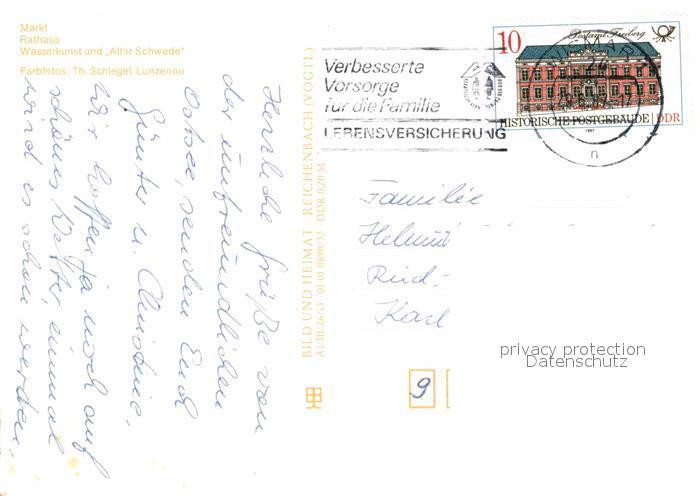 Markt
Rathaus
Wasserkunst und „Alter Schwede"
Farbfotos: Th. Schlegel, Lunzenau
Herzliche Grüße von
der unfreundlichen
Ostsee, senden Euch
Günter u. Christine.
Wir hoffen ja noch auf
schönes Wetter, einmal
wird es schon werden.
BILD UND HEIMAT · REICHENBACH (VOGTL)
A1/III/26/13 01 01 0890/33 DDR 0,20 M
Verbesserte
Vorsorge
für die Familie
LEBENSVERSICHERUNG
10
Postamt Freiberg
WISMAR
HISTORISCHE POSTGEBÄUDE | DDR
1987
n
Familie
Helmut
Karl
9
privacy protection
Datenschutz